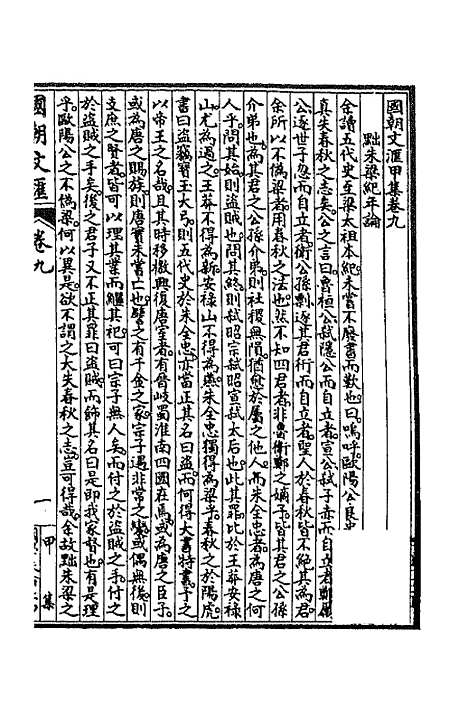 國朝文滙甲集卷九
黜朱梁紀年論
余讀五代史至梁太祖本紀未嘗不廢書而歎也曰嗚呼歐陽公良史
真失春秋之志矣公之言曰魯桓公弒隱公而自立者宣公弒子赤而自立者鄭厲
公逐世子忽而自立者衛公孫剽逐其君衎而自立者聖人於春秋皆不絕其為君
余所以不偽梁者用春秋之法也然不知四君者非魯衛鄭之嫡子皆其君之公孫
介弟也為其君之公孫介弟則社稷無隕猶愈於屬之他人而朱全忠者為唐之何
人乎問其始則盜賊也問其終則弒昭宗弒昭宣弒太后也此其罪比於王莽安祿
山尤為過之王莽不得為新安祿山不得為燕朱全忠獨得為梁乎春秋之於陽虎
書曰盜竊寶玉大弓則五代史於朱全忠亦當正其名曰盜而何得大書特書予之
以帝王之名哉且其時移檄興復唐室者有晉岐蜀淮南四國在焉或為唐之臣子
或為唐之賜族則唐實未嘗亡也譬之有千金之家宗子遇非常之變或偶無後則
支庶之賢者皆可以理其業而繼其祀可曰宗子無人矣而付之於盜賊之手付之
於盜賊之手矣後之君子又不正其罪曰盜賊而飾其名曰是即我家督也有是理
乎歐陽公之不偽梁何以異是欲不謂之大失春秋之志豈可得哉余故黜朱梁之
國朝文滙
卷九
一
甲集